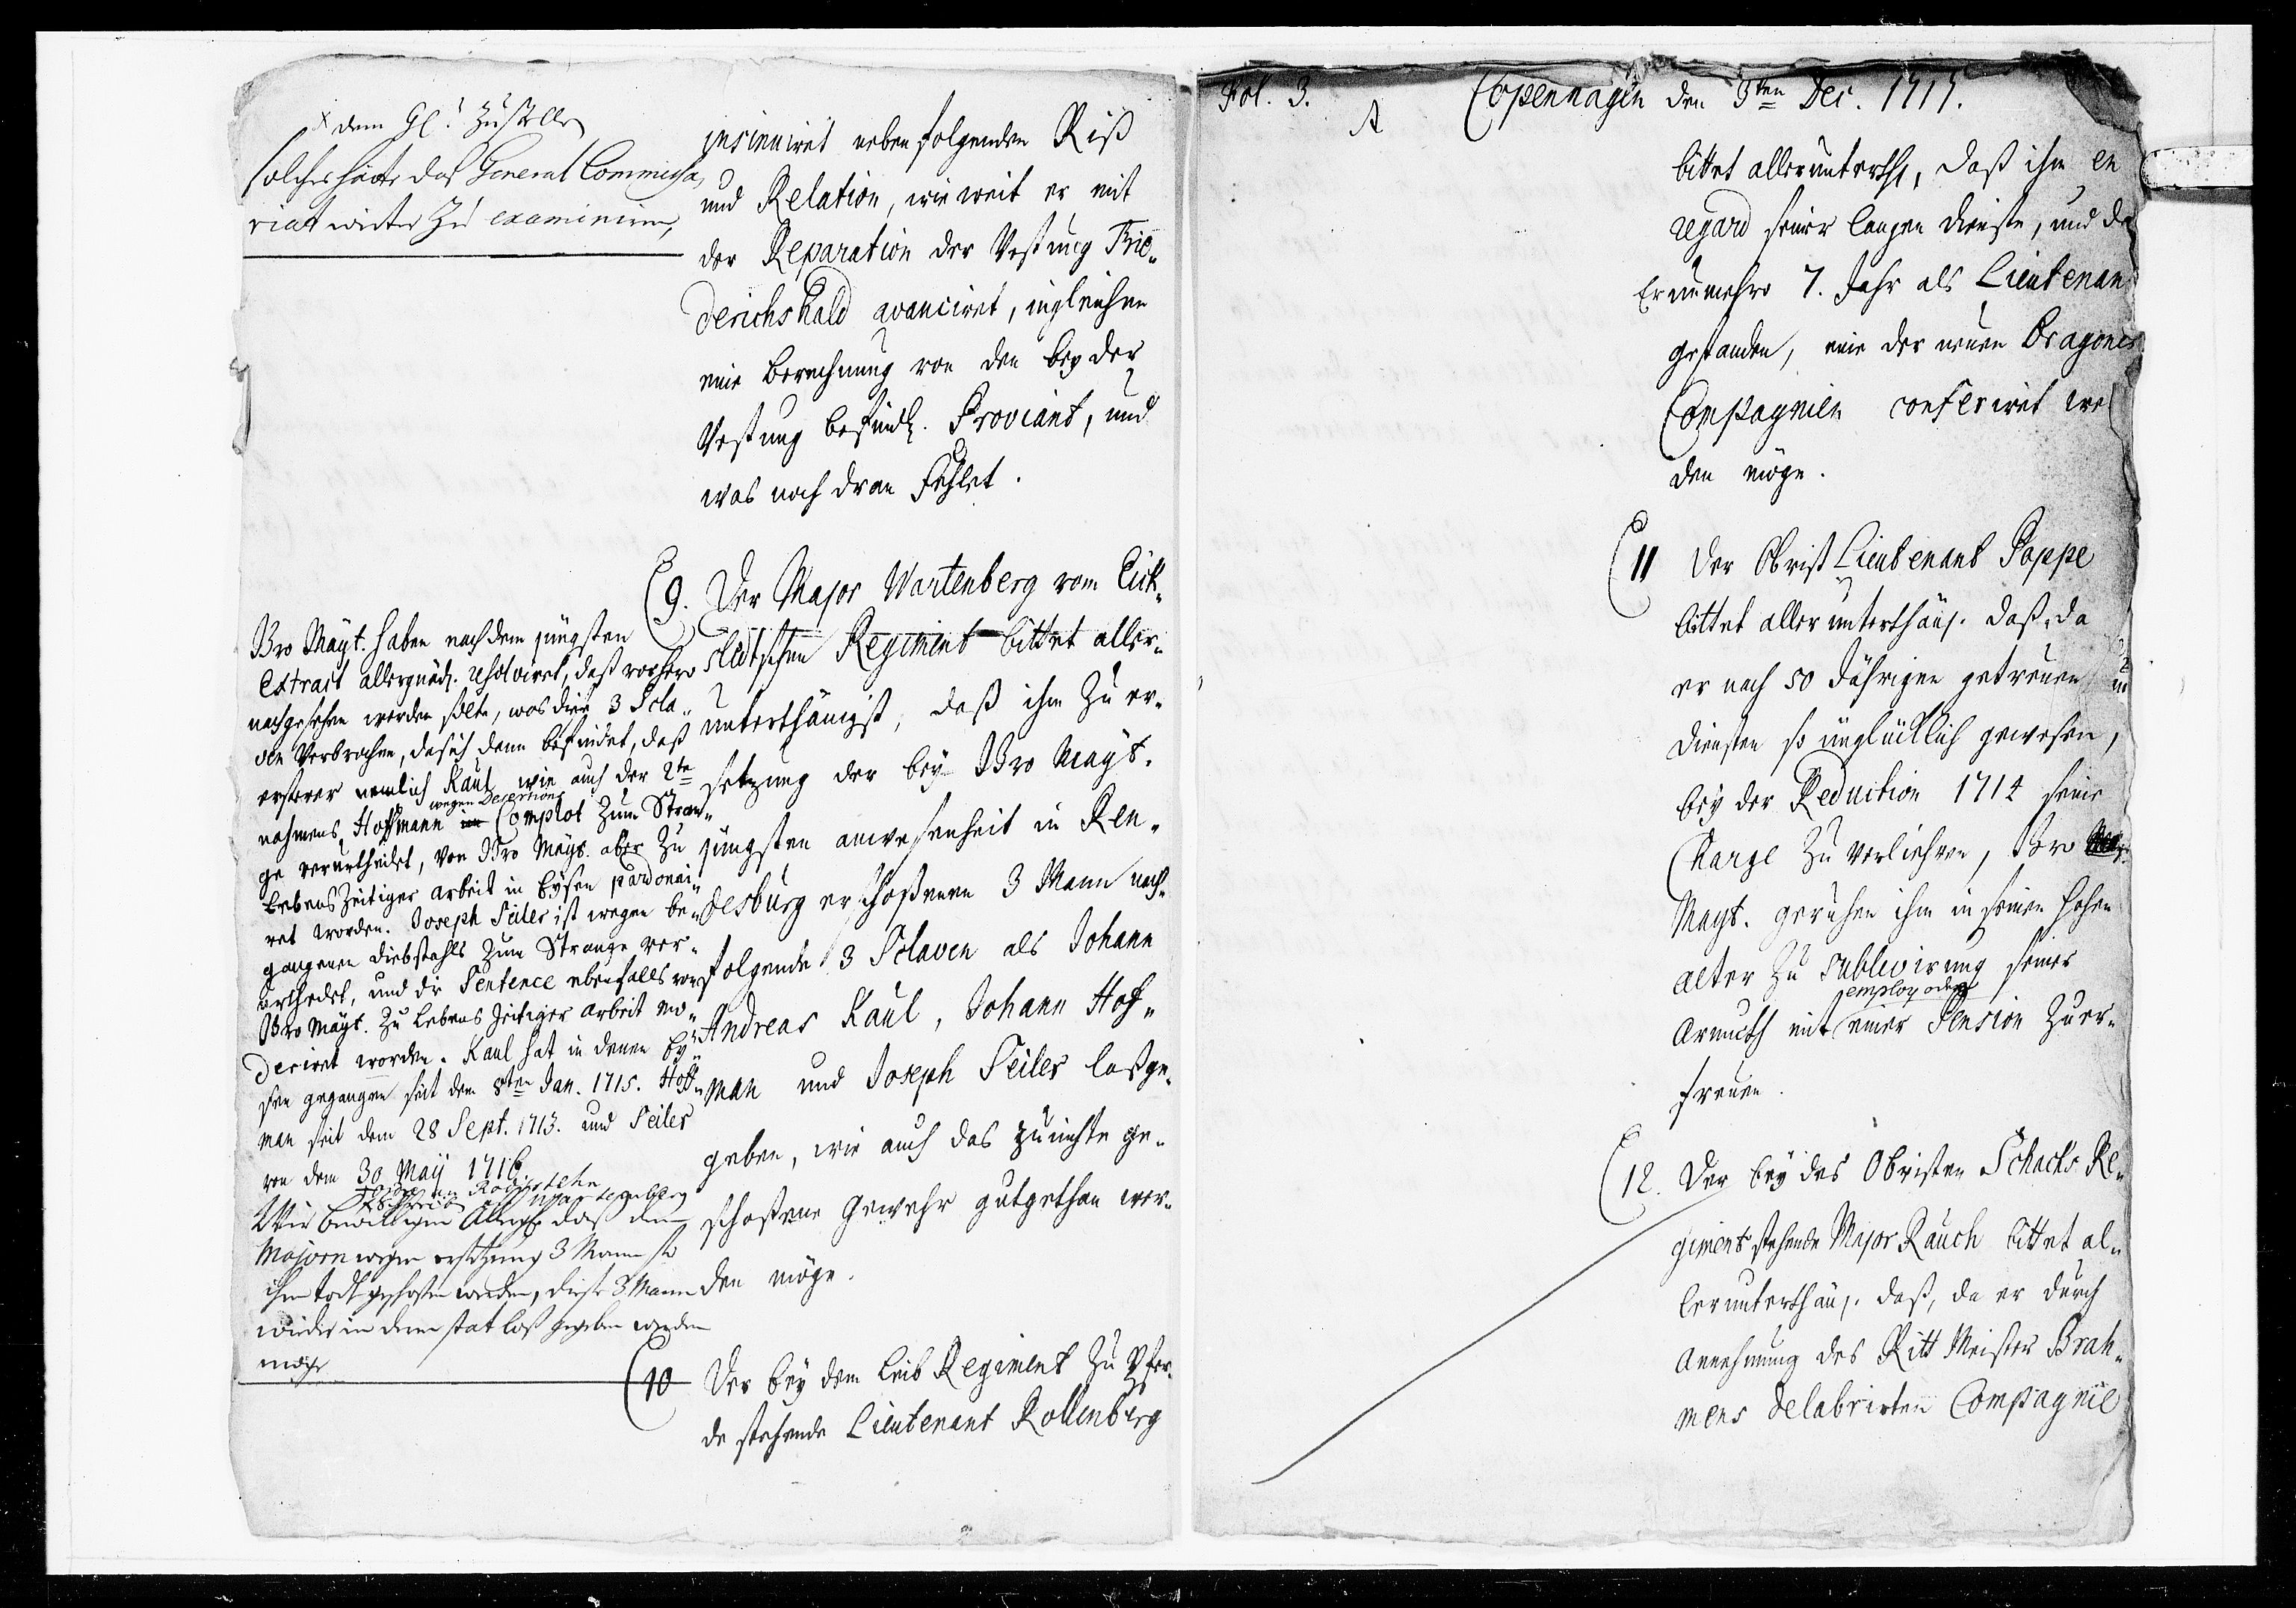 x dem Gl. zustellen
solches hätte das General Commissa,
riatt weiter zu examiniren,
insinuiret neben folgenden Riß
und Relation, wie weit er mit
der Reparation der Vestung Frie„
derichshald avanciret, ingleichen
eine Berechnung von den bey der
Vestung befindl. Proviant, und
was noch dran Fehlet.
9. Der Major Wartenberg vom Eick„
stedtschen Regiment bittet aller„
unterthänigst, daß ihm zu er„
setzung der bey Ihro Mayt.
jüngsten anwesenheit in Ren„
desburg erschoßenen 3 Mann nach„
folgende 3 Sclaven als Johann
Andreas Kaul, Johann Hof„
man und Joseph Seiler loßge„
geben, wie auch das zu nichte ge„
schoßene Gewehr gutgethan wer„
den möge.
Ihro Mayt. haben nach dem jüngsten
Extract allergnäd. resolviret, daß vorhero
nachgesehen werden solte, was diese 3 Scla„
ven Verbrochen, da sich dann befindet, daß
ersterer nemlich Kaul wie auch der 2te
nahmens Hoffmann wegen Desertions Complot zum Stran„
ge verurtheilet, von Ihro Mayt. aber zu
Lebens Zeitiger arbeit in Eysen pardonni„
ret worden. Joseph Seiler ist wegen be„
gangenen Diebstahls zum Strange ver„
urtheilet, und die Sentence ebenfalls von
Ihro Mayt. zu Lebens Zeitiger arbeit mo„
deriret worden. Kaul hat in denen Ey„
sen gegangen seit dem 8ten Jan. 1715. Hoff„
man seit dem 28 Sept. 1713. und Seiler
von dem 30 May 1716.
Wir bewilligen Allergst. daß dem
Majorn wegen ersetzung 3 Mann so
ihm todt geschossen worden, diese 3 Mann
wieder in deren stat loß gegeben werden
möge
10 Der bey dem Leib Regiment zu Pfer„
de stehende Lieutenant Rollenberg
Fol. 3. A Copenhagen den 3ten Dec. 1717.
bittet allerunterth., daß ihm en
regard seiner langen dienste, und da
Er nunmehro 7. Jahr als Lieutenant
gestanden, eine der neuen Dragoner
Compagnien conferiret wer
den möge.
11 Der Obrist Lieutenant Poppe
bittet allerunterthänig. daß, da
er nach 50 Jährigen getreuen
diensten so unglücklich gewesen,
bey der Reduction 1714 seine
Charge zu verliehren, Ihro
Mayt. geruhen ihm in seinen hohen
alter zu sublevirung seiner
Armuth mit employ oder einer Pension zu er„
freuen.
12. Der bey des Obristen Schacks Re„
giment stehende Major Rauch bittet al„
lerunterthänig. daß, da er durch
Annehmung des Ritt Meister Brah„
mens delabrirten Compagnie